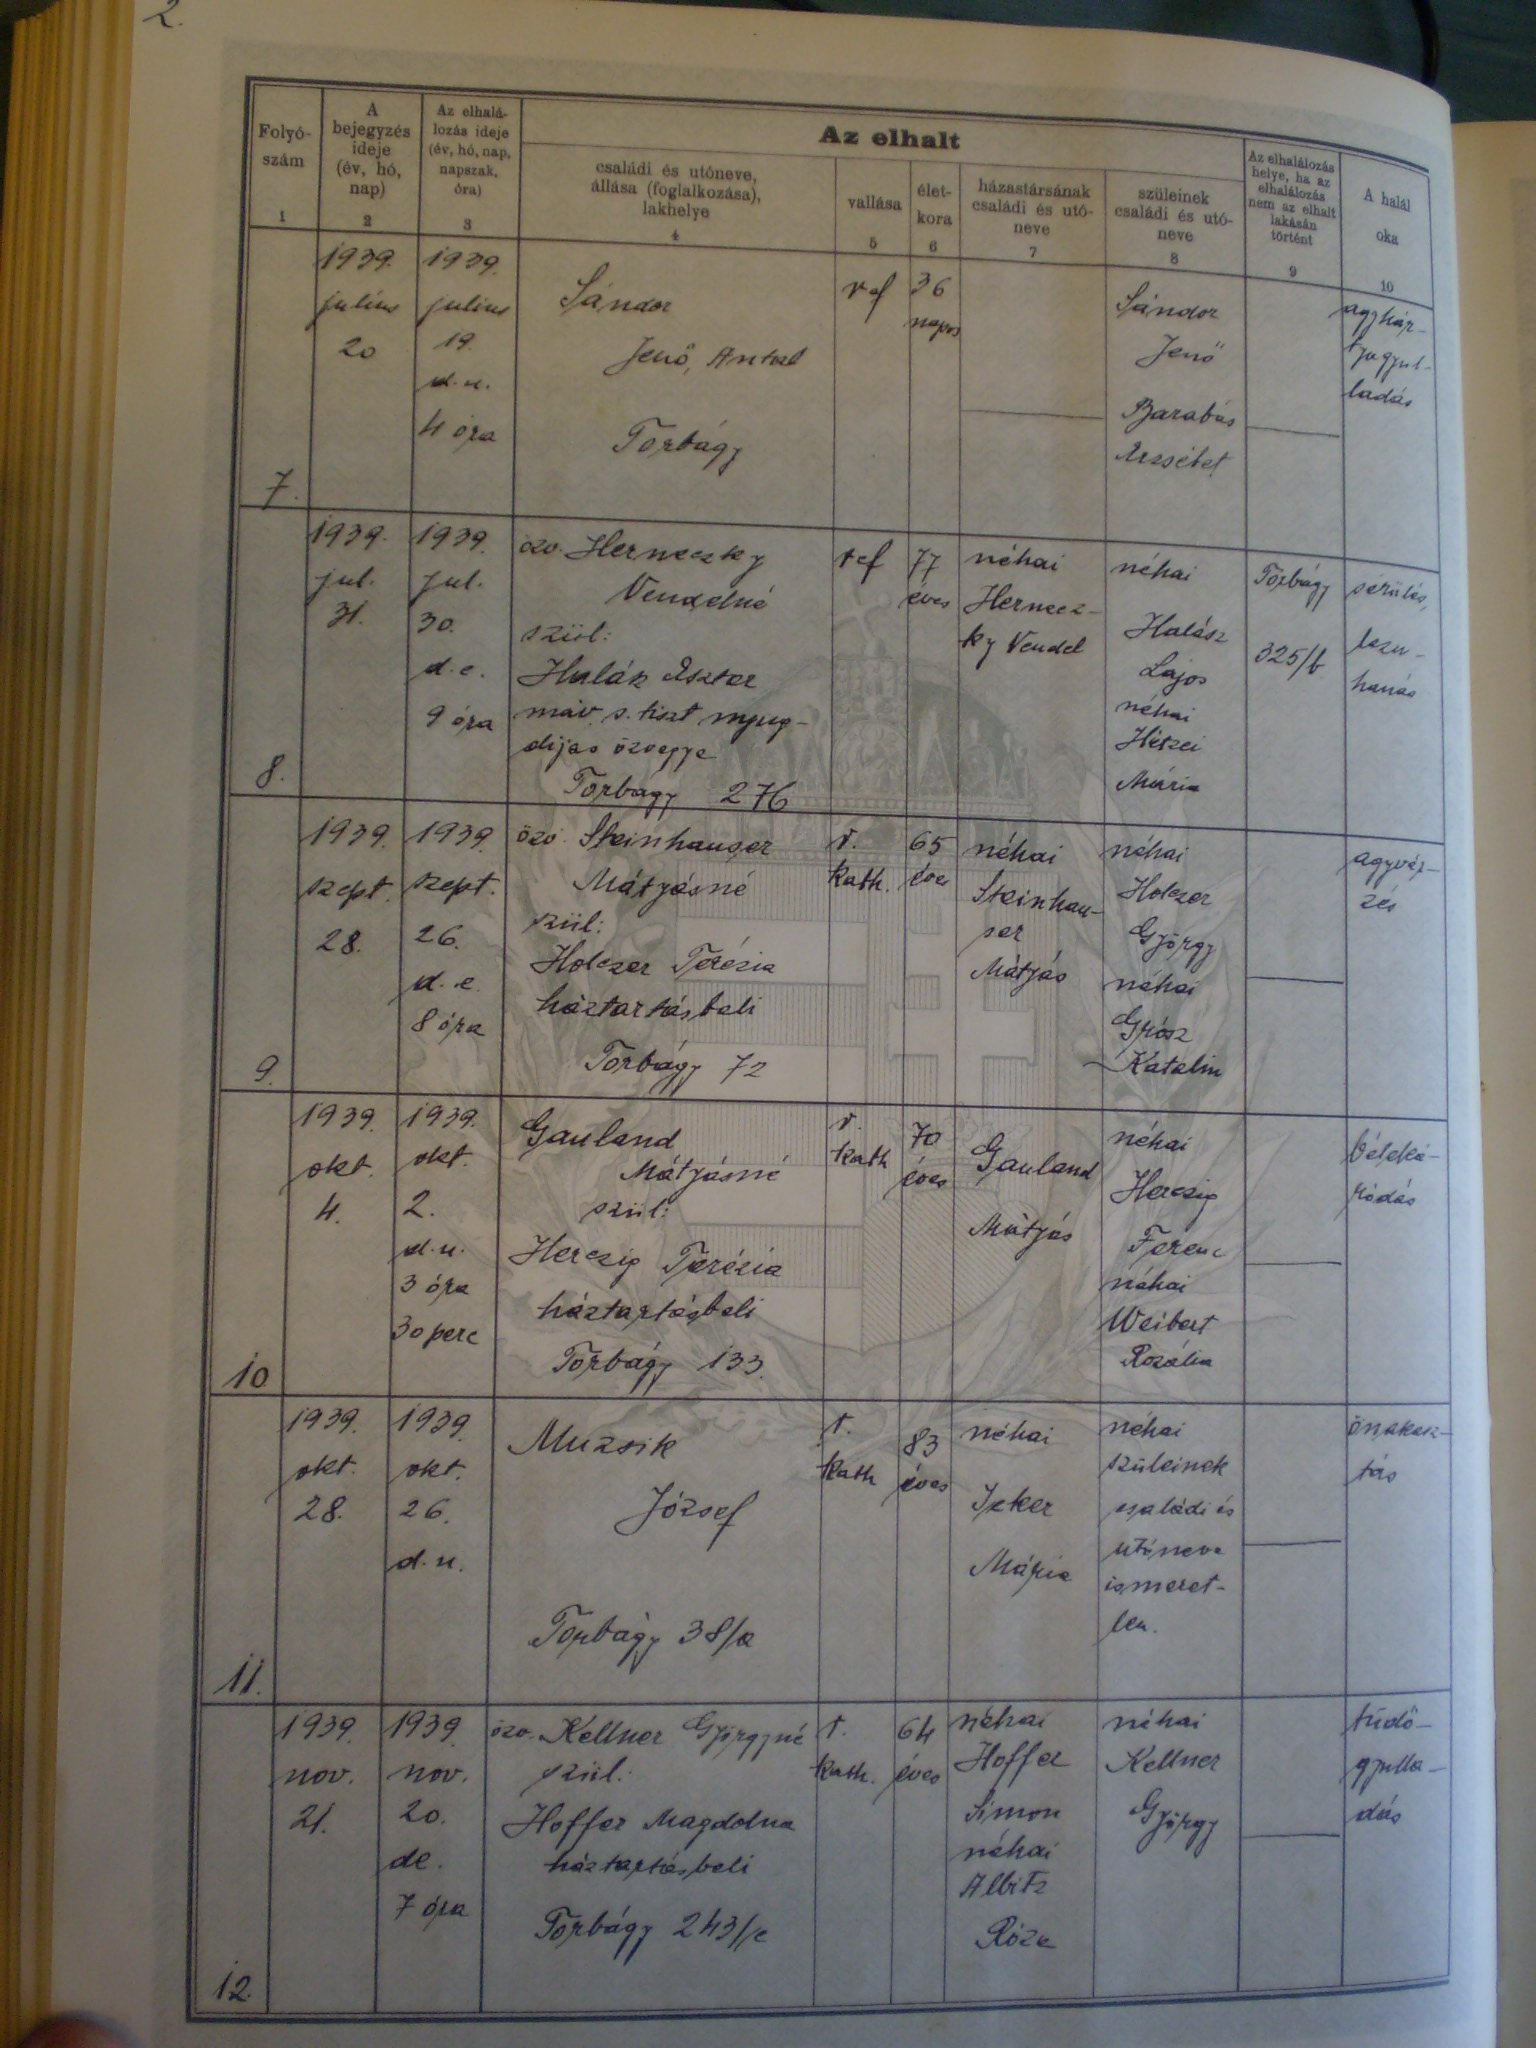 2.
Az elhalt
Folyó-
szám
1
A
bejegyzés
ideje
(év, hó,
nap)
2
Az elhalá-
lozás ideje
(év, hó, nap,
napszak,
óra)
3
családi és utóneve,
állása (foglalkozása),
lakhelye
4
vallása
5
élet-
kora
6
házastársának
családi és utó-
neve
7
szüleinek
családi és utó-
neve
8
Az elhalálozás
helye, ha az
elhalálozás
nem az elhalt
lakásán
történt
9
A halál
oka
10
7.
1939.
július
20
1939.
július
19.
d.u.
4 óra
Sándor
Jenő, Antal
Torbágy
ref
36
napos
Sándor
Jenő
Barabás
Erzsébet
agyhár-
tyagyul-
ladás
8.
1939.
jul.
31.
1939.
jul.
30.
d.e.
9 óra
özv. Herneczky
Vendelné
szül:
Halász Eszter
máv. s. tiszt nyug-
díjas özvegye
Torbágy 276
ref
77
éves
néhai
Hernecz-
ky Vendel
néhai
Halász
Lajos
néhai
Mária
Torbágy
325/b
sérülés,
lezu-
hanás
9.
1939.
szept.
28.
1939.
szept.
26.
d.e.
8 óra
özv. Steinhauser
Mátyásné
szül:
Holczer Terézia
háztartásbeli
Torbágy 72
r.
kath.
65
éves
néhai
Steinhau-
ser
Mátyás
néhai
Holczer
György
néhai
Grósz
Katalin
agyvér-
zés
10
1939.
okt.
4.
1939.
okt.
2.
d.u.
3 óra
30 perc
Gauland
Mátyásné
szül:
Herczig Terézia
háztartásbeli
Torbágy 133.
r.
kath
70
éves
Gauland
Mátyás
néhai
Herczig
Ferenc
néhai
Weibert
Rozália
bélelzá-
ródás
11.
1939.
okt.
28.
1939.
okt.
26.
d.u.
Muzsik
József
Torbágy 38/a
r.
kath
83
éves
néhai
Mária
néhai
szüleinek
családi és
utóneve
ismeret-
len.
önakasz-
tás
12.
1939.
nov.
21.
1939.
nov.
20.
de.
7 óra
özv. Kellner Györgyné
szül:
Hoffer Magdolna
háztartásbeli
Torbágy 243/c
r.
kath.
64
éves
néhai
Hoffer
Simon
néhai
Albitz
Róza
néhai
Kellner
György
tüdő-
gyulla-
dás